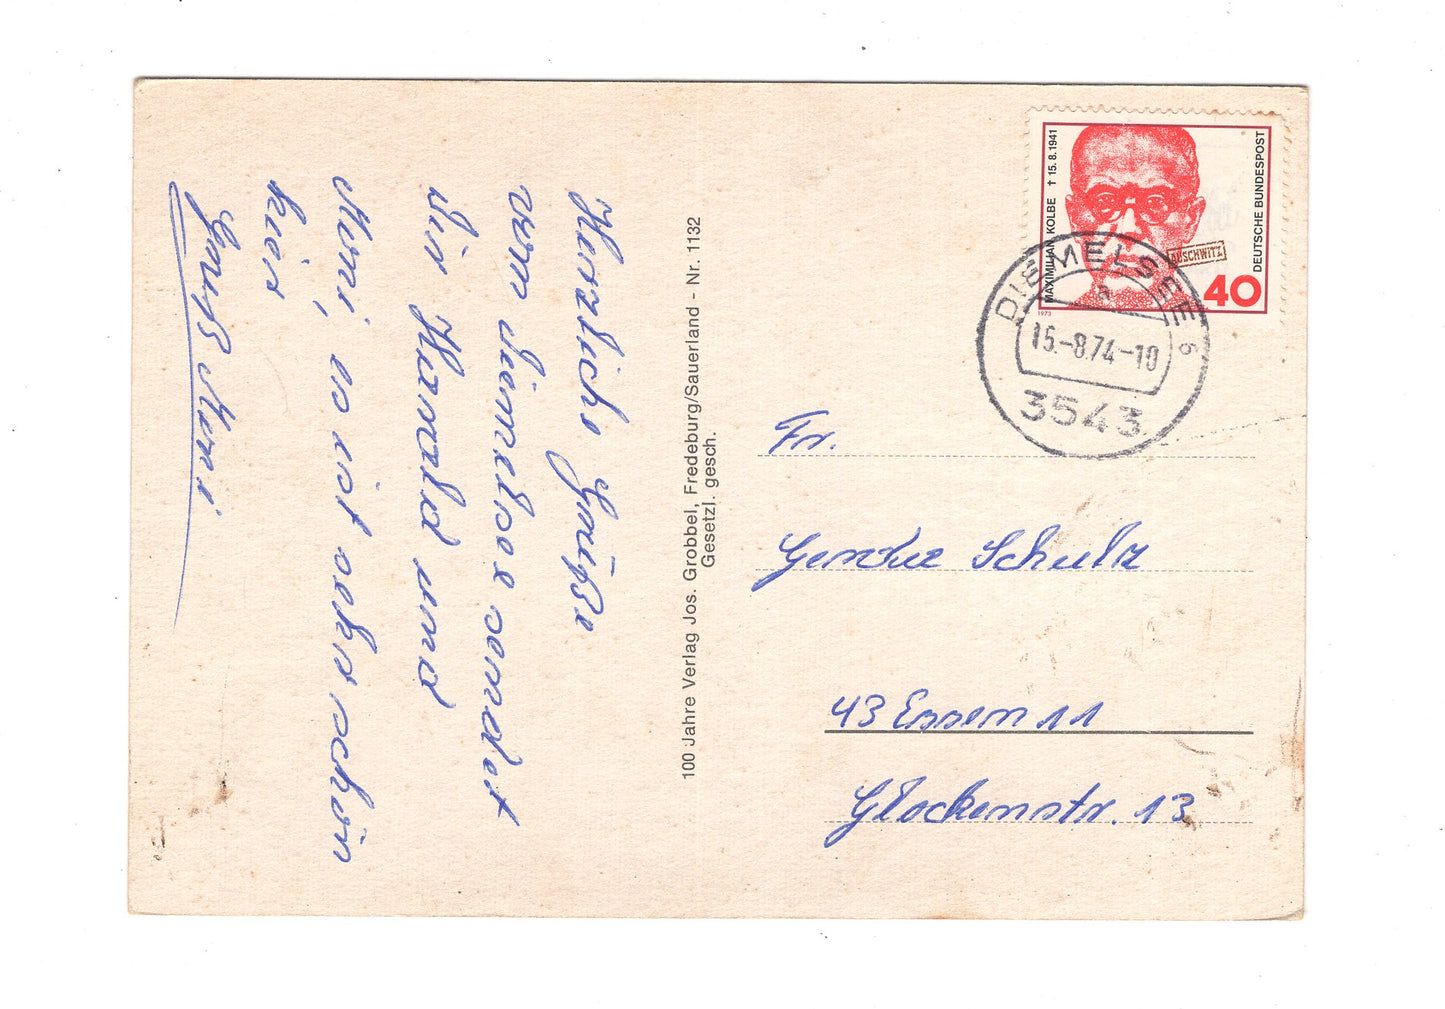 Herzliche Grüße
vom Diemelsee sendet
Dir Harald und
Moni, es ist sehr schön
hier
Gruß Moni
100 Jahre Verlag Jos. Grobbel, Fredeburg/Sauerland - Nr. 1132
Gesetzl. gesch.
MAXIMILIAN KOLBE † 15.8.1941
AUSCHWITZ
DEUTSCHE BUNDESPOST
40
1973
DIEMELSEE 6
a
15.-8.74-10
3543
Fr.
Schulz
43 Essen 11
Glockenstr. 13